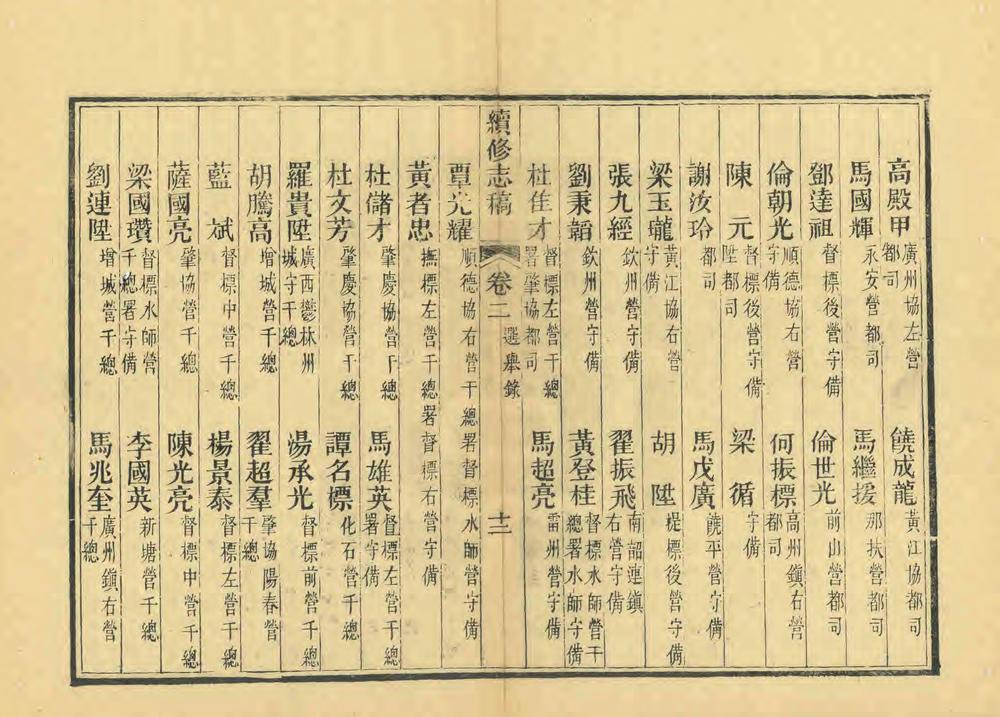 高殿甲 廣州協左營都司 饒成龍 黃江協都司
馬國輝 永安營都司 馬繼援 那扶營都司
鄧達祖 督標後營守備 倫世光 前山營都司
倫朝光 順德協右營守備 何振標 高州鎭右營都司
陳元 督標後營守備陞都司 梁循 守備
謝汝玠 都司 馬戊廣 饒平營守備
梁玉瓏 黃江協右營守備 胡陞 提標後營守備
張九經 欽州營守備 翟振飛 南韶連鎭右營守備
劉秉韜 欽州營守備 黃登桂 督標水師營千總署水師守備
杜隹才 督標左營千總署肇協都司 馬超亮 雷州營守備
續修志稿 卷二 選舉錄 十二
覃光耀 順德協右營千總署督標水師營守備
黃者忠 撫標左營千總署督標右營守備
杜儲才 肇慶協營千總 馬雄英 督標左營千總署守備
杜文芳 肇慶協營千總 譚名標 化石營千總
羅貴陞 廣西鬱林州城守千總 湯承光 督標前營千總
胡騰高 增城營千總 翟超羣 肇協陽春營千總
藍斌 督標中營千總 楊景泰 督標左營千總
薩國亮 肇協營千總 陳光亮 督標中營千總
梁國瓚 督標水師營千總署守備 李國英 新塘營千總
劉連陞 增城營千總 馬兆奎 廣州鎭右營千總